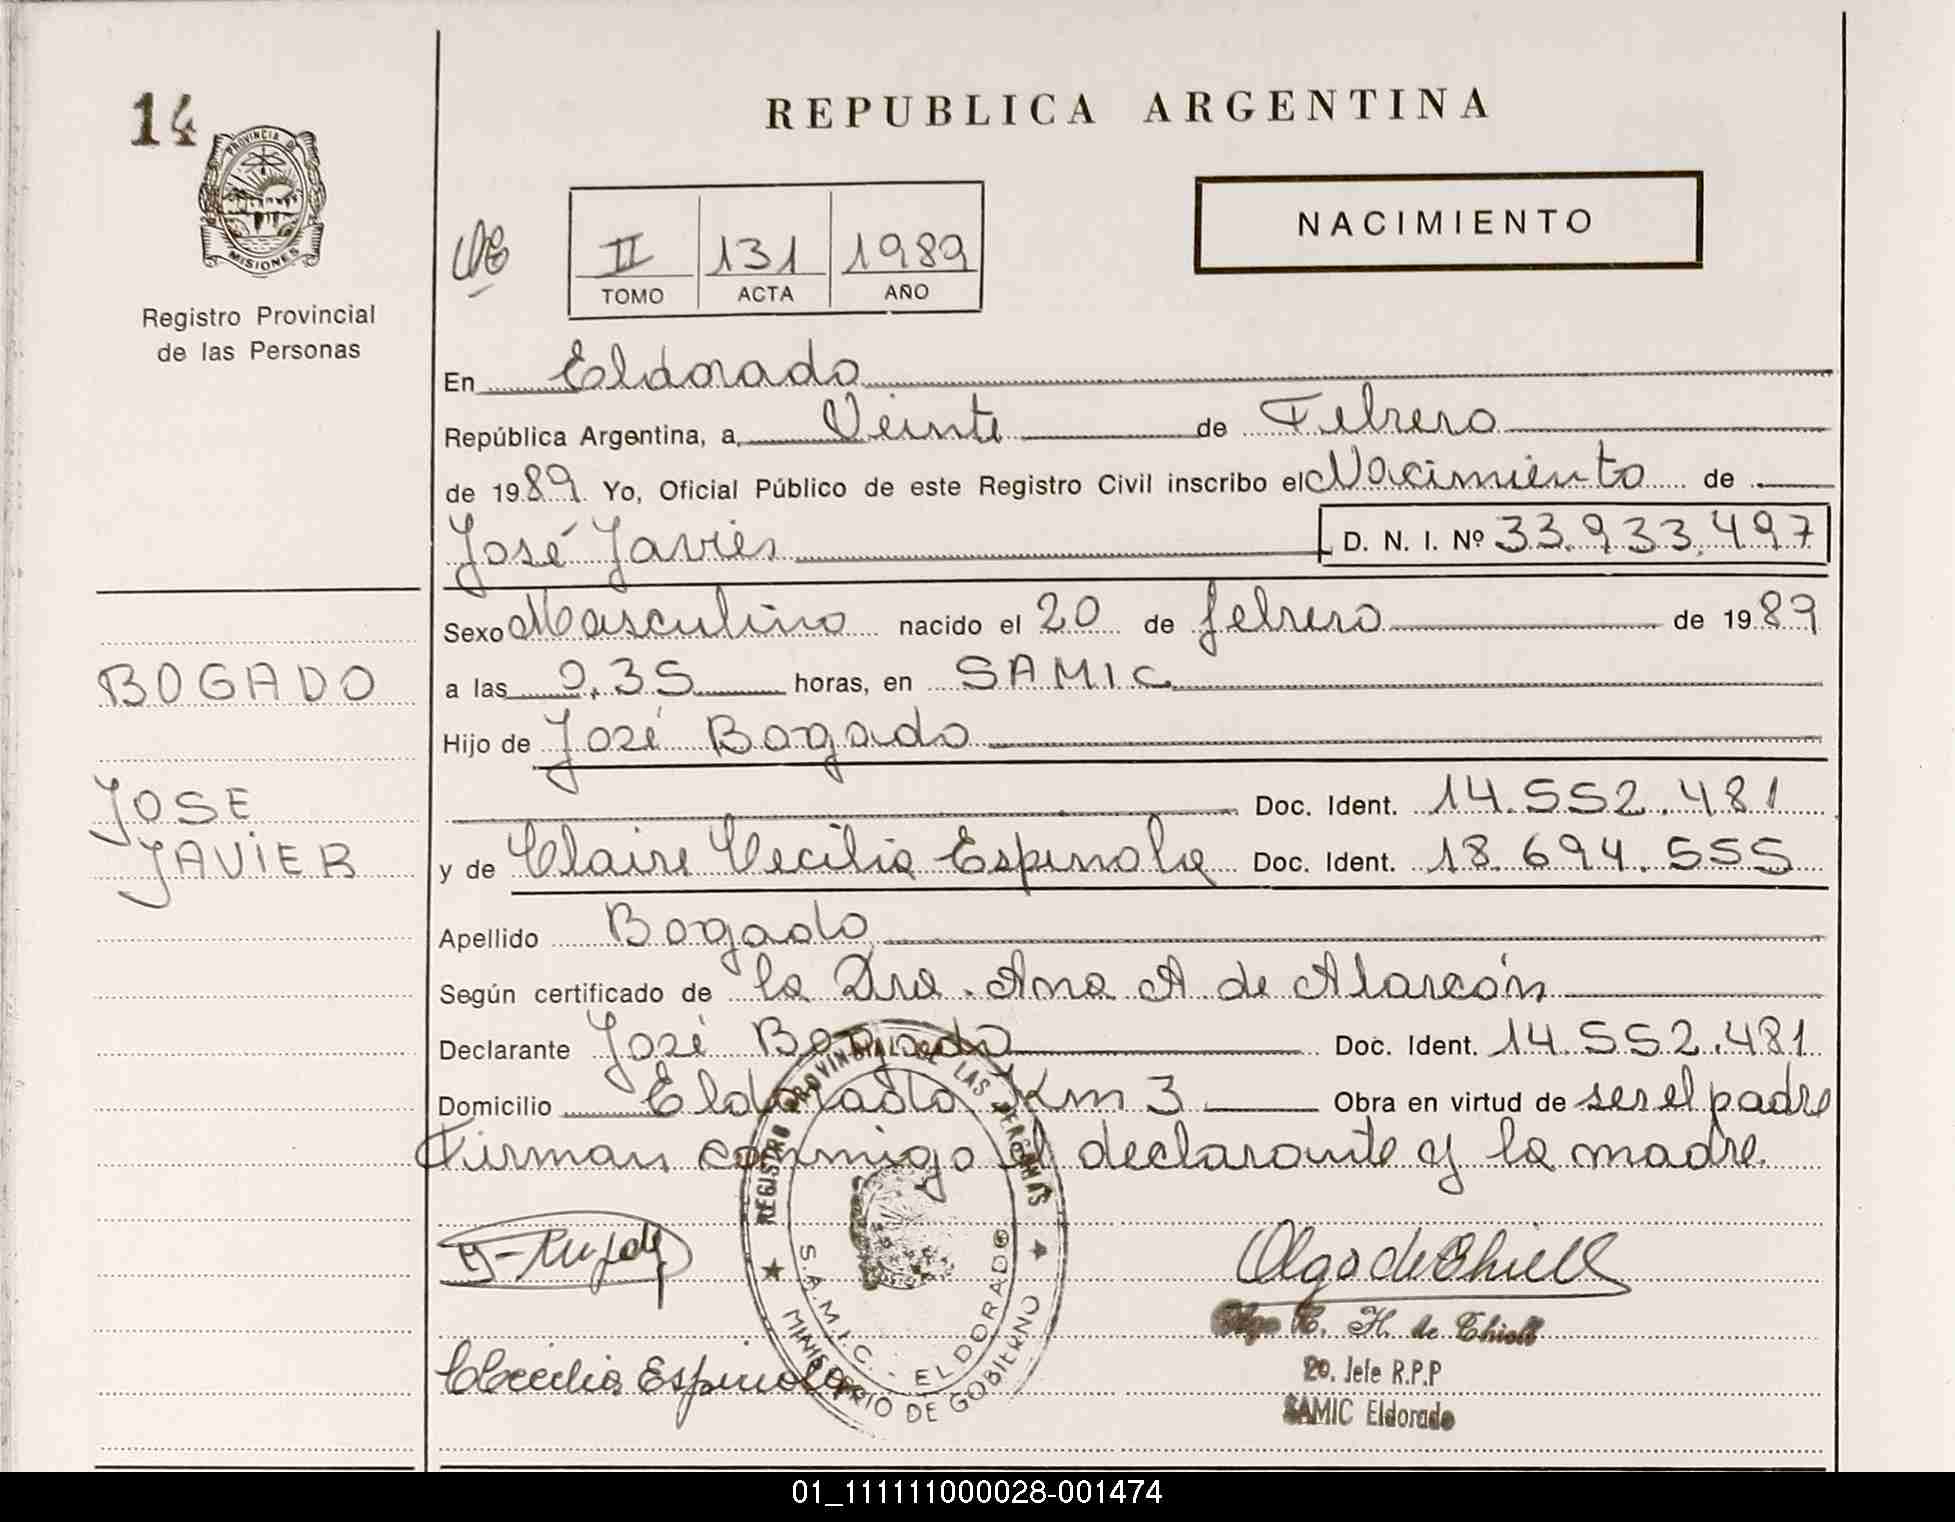 14
PROVINCIA DE
MISIONES
Registro Provincial
de las Personas
REPUBLICA ARGENTINA
NACIMIENTO
II 131 1989
TOMO ACTA AÑO
En Eldorado
República Argentina, a Veinte de Febrero
de 1989 Yo, Oficial Público de este Registro Civil inscribo el Nacimiento de
José Javier D. N. I. Nº 33.933.497
Sexo Masculino nacido el 20 de febrero de 1989
BOGADO
a las 0,35 horas, en SAMIC
Hijo de José Bogado
JOSE
JAVIER
Doc. Ident. 14.552.481
y de Claire Cecilia Espinola Doc. Ident. 18.694.555
Apellido Bogado
Según certificado de la Dra. Ana A de Alarcón
Declarante José Bogado Doc. Ident. 14.552.481
Domicilio Eldorado Km 3 Obra en virtud de ser el padre
Firman conmigo el declarante y la madre.
REGISTRO PROVINCIAL DE LAS PERSONAS
S.A.M.I.C. - ELDORADO
MINISTERIO DE GOBIERNO
Olga de Thiell
CCecilia Espinola
Olga E. H. de Thiell
20. Jefe R.P.P
SAMIC Eldorado
01_111111000028-001474